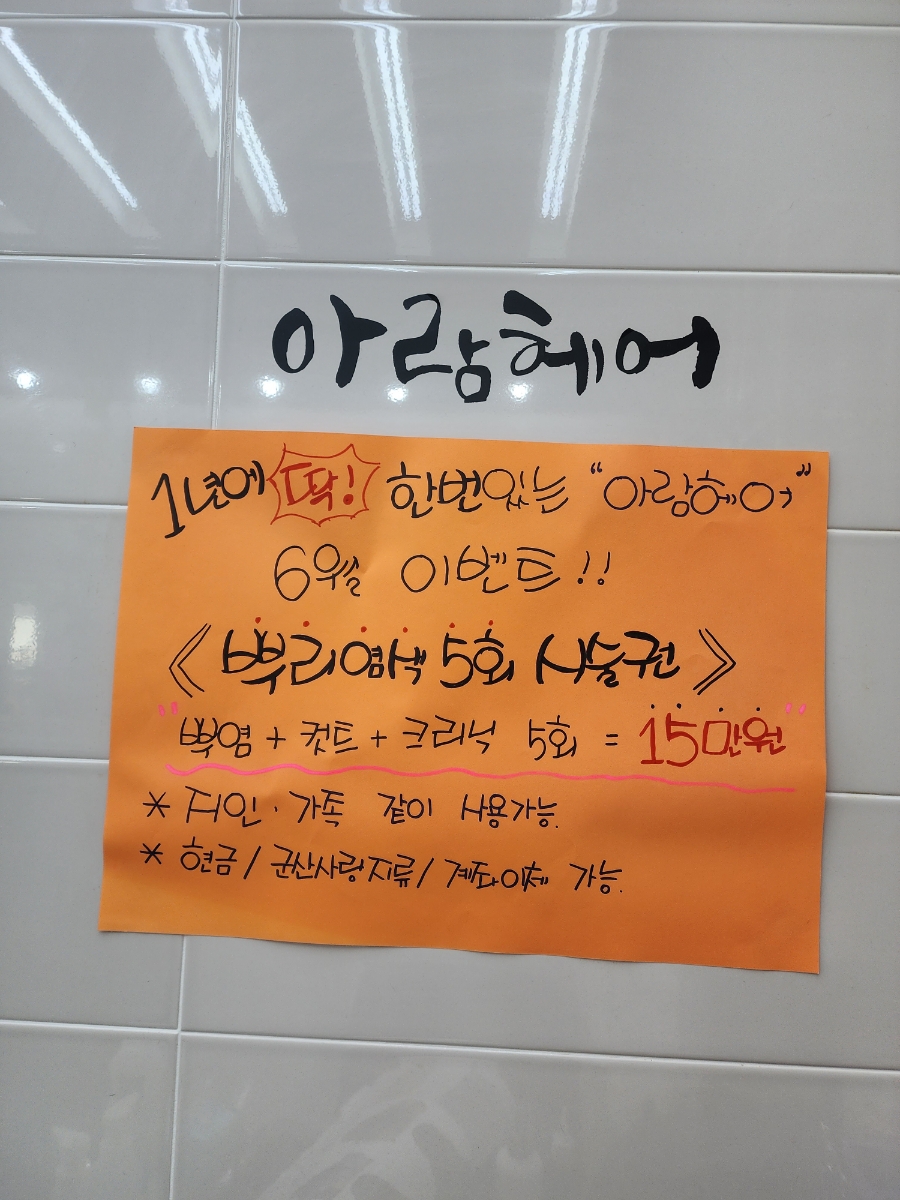 아람헤어
1년에 딱! 한번있는 “아람헤어”
6월 이벤트!!
《 뿌리염색 5회 시술권 》
"뿌염 + 컷트 + 크리닉 5회 = 15만원"
* 지인·가족 같이 사용가능.
* 현금/군산사랑지류/계좌이체 가능.